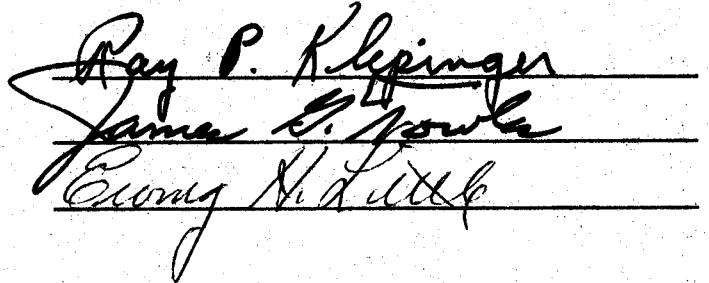 Ray P. Klepinger
James G. Fowler
Ewing H. Little